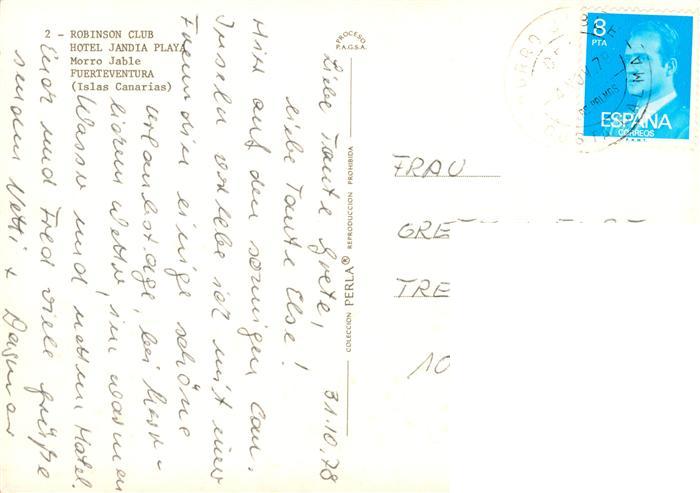 2 - ROBINSON CLUB
HOTEL JANDIA PLAYA
Morro Jable
FUERTEVENTURA
(Islas Canarias)
PROCESO
P.A.G.S.A.
COLECCION PERLA® REPRODUCCION PROHIBIDA
31.10.78
Liebe Tante Grete,
liebe Tante Else!
Hier auf den sonnigen Can.
Inseln verlebe ich mit einer
Freundin einige schöne
Urlaubstage, bei herr-
lichem Wetter, im warmen
Wasser und nettem Hotel.
Euch und Fred viele Grüße
senden Netti + Dagmar
8
PTA
ESPAÑA
CORREOS
NOV. 78
FRAU
GRE
TRE
10